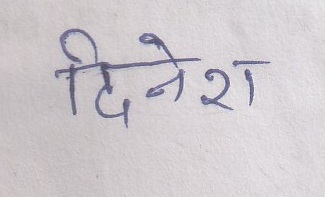 दिनेश